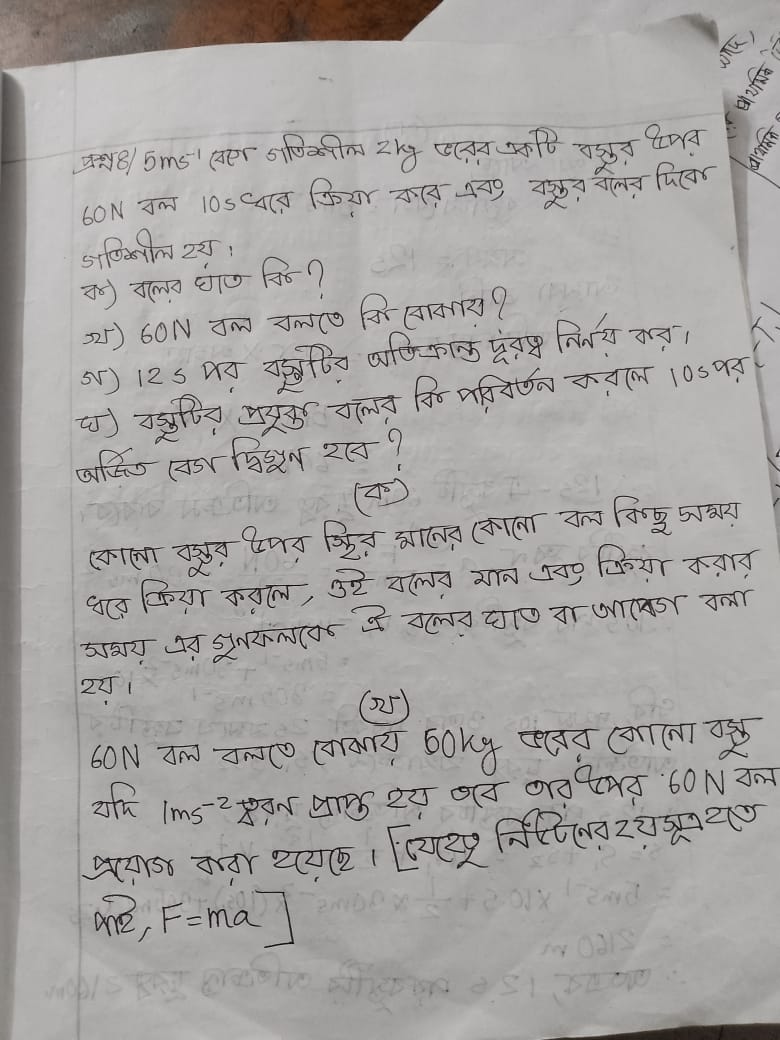 প্রশ্ন৪/ 5ms⁻¹ বেগে গতিশীল 2kg ভরের একটি বস্তুর উপর
60N বল 10s ধরে ক্রিয়া করে এবং বস্তুর বলের দিকে
গতিশীল হয়।
ক) বলের ঘাত কি?
খ) 60N বল বলতে কি বোঝায়?
গ) 12s পর বস্তুটির অতিক্রান্ত দূরত্ব নির্নয় কর।
ঘ) বস্তুটির প্রযুক্ত বলের কি পরিবর্তন করলে 10s পর
অর্জিত বেগ দ্বিগুন হবে?
(ক)
কোনো বস্তুর উপর স্থির মানের কোনো বল কিছু সময়
ধরে ক্রিয়া করলে, ওই বলের মান এবং ক্রিয়া করার
সময় এর গুনফলকে ঐ বলের ঘাত বা আবেগ বলা
হয়।
(খ)
60N বল বলতে বোঝায় 60kg ভরের কোনো বস্তু
যদি 1ms⁻² ত্বরন প্রাপ্ত হয় তবে তার উপর 60N বল
প্রয়োগ করা হয়েছে। [যেহেতু নিউটনের ২য় সূত্র হতে
পাই, F=ma]